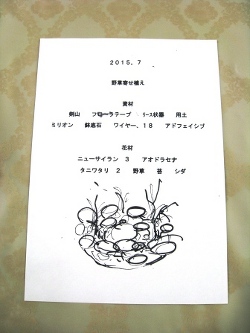 2015.7
野草寄せ植え
資材
剣山 フローラテープ リース状器 用土
ミリオン 鉢底石 ワイヤー.18 アドフェイシブ
花材
ニューサイラン 3 アオドラセナ
タニワタリ 2 野草 苔 シダ